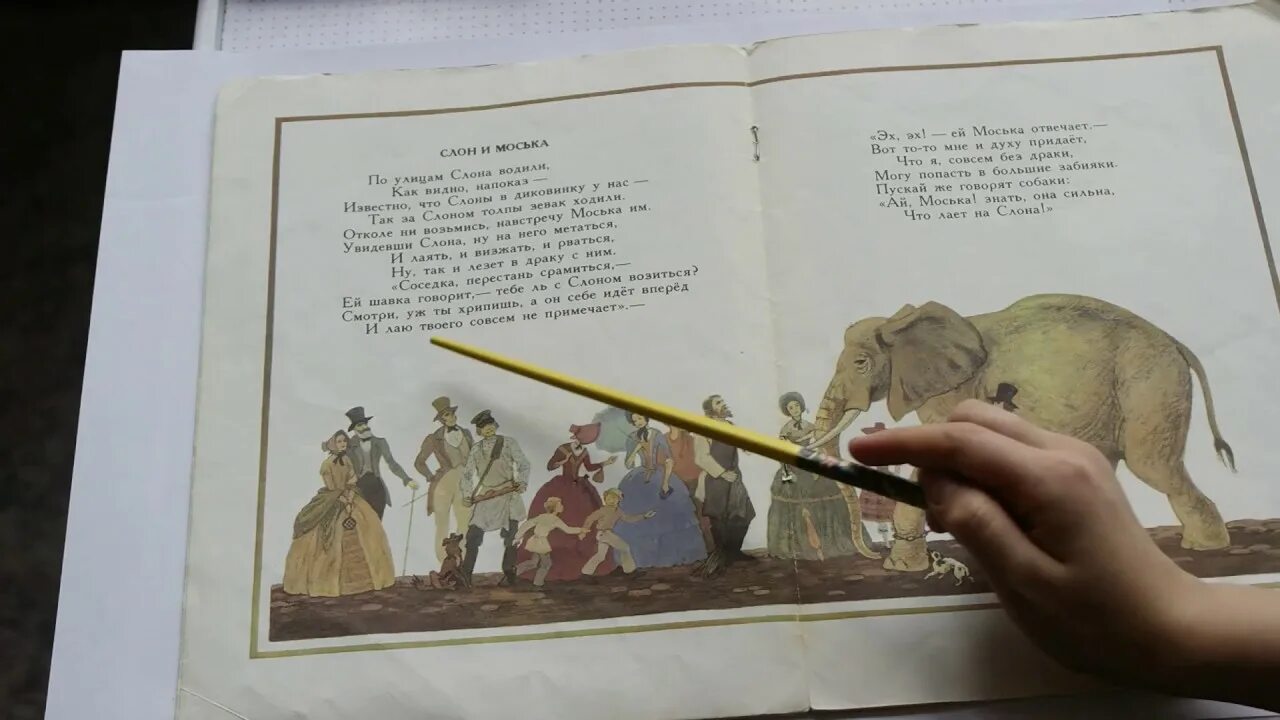 СЛОН И МОСЬКА
По улицам Слона водили,
Как видно, напоказ —
Известно, что Слоны в диковинку у нас —
Так за Слоном толпы зевак ходили.
Отколе ни возьмись, навстречу Моська им.
Увидевши Слона, ну на него метаться,
И лаять, и визжать, и рваться,
Ну, так и лезет в драку с ним.
«Соседка, перестань срамиться,—
Ей шавка говорит,— тебе ль с Слоном возиться?
Смотри, уж ты хрипишь, а он себе идёт вперёд
И лаю твоего совсем не примечает».—
«Эх, эх! — ей Моська отвечает.—
Вот то-то мне и духу придаёт,
Что я, совсем без драки,
Могу попасть в большие забияки.
Пускай же говорят собаки:
«Ай, Моська! знать, она сильна,
Что лает на Слона!»